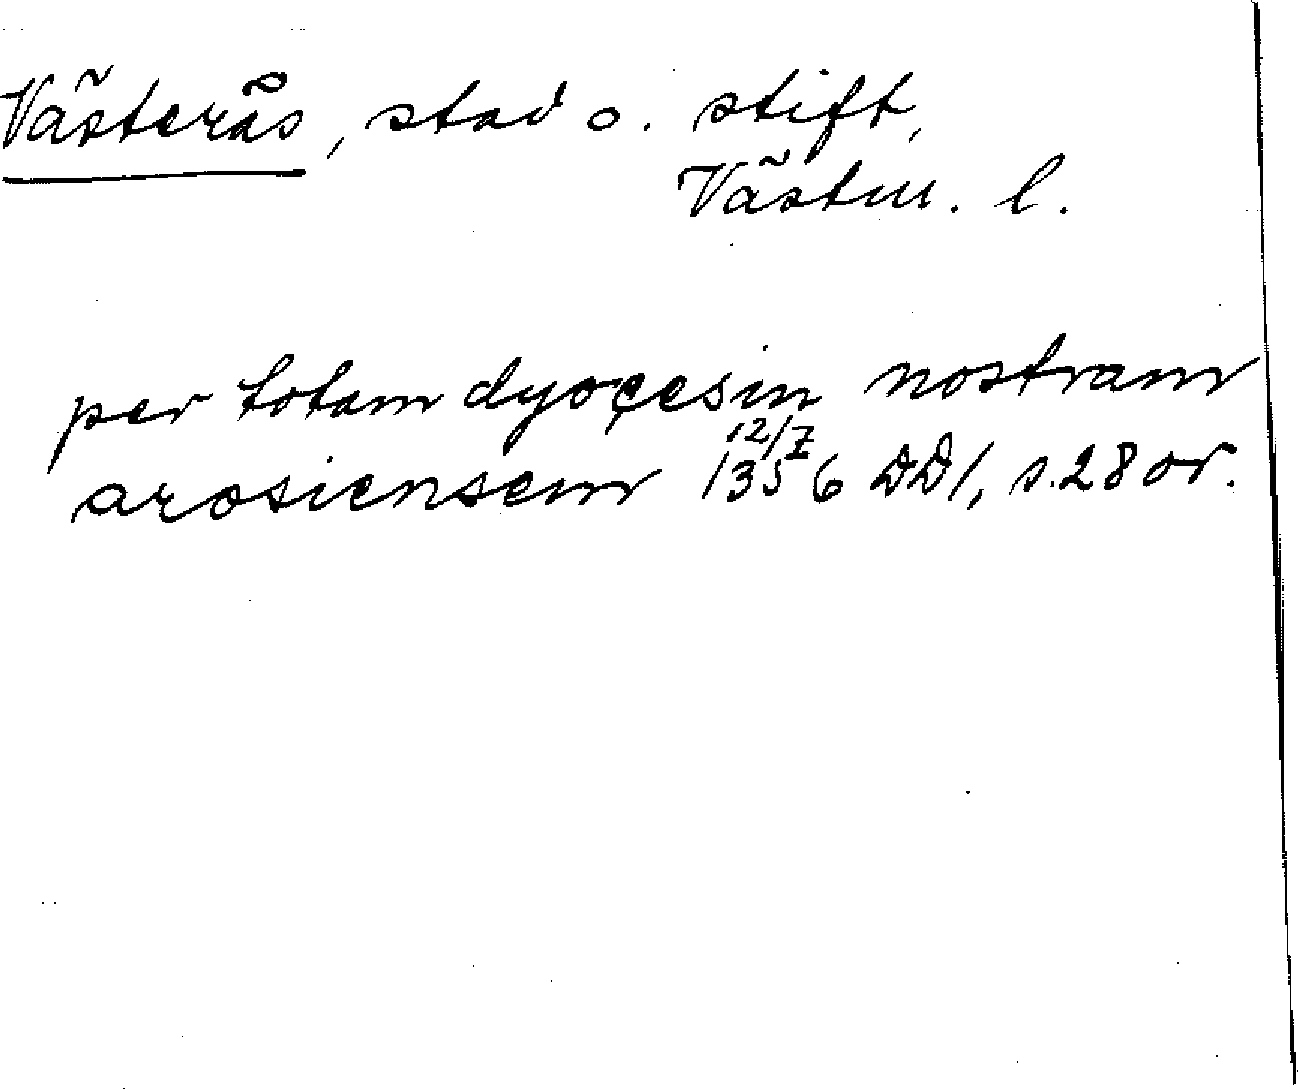 Västerås, stad o. stift,
Västm. l.
per totam dyocesin nostram
12/7
arosiensem 1356 DD1, s. 28 or.